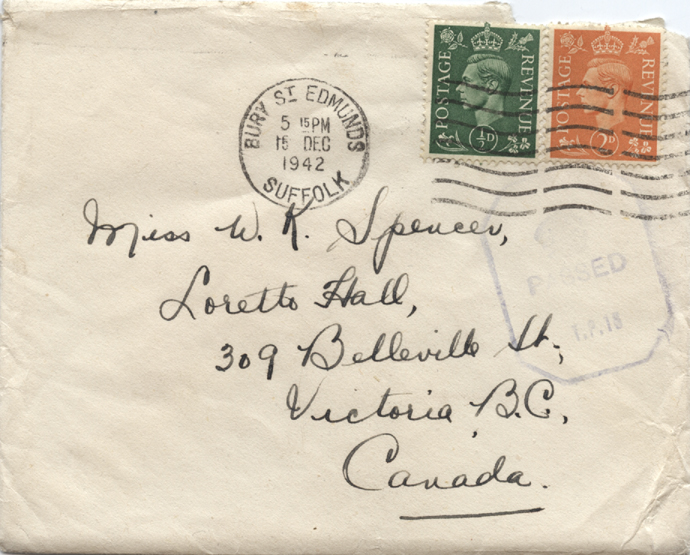 BURY ST EDMUNDS
5 15PM
15 DEC
1942
SUFFOLK
POSTAGE REVENUE
½D
POSTAGE REVENUE
2D
PASSED
T.P.15
Miss W. K. Spencer,
Loretto Hall,
309 Belleville St.,
Victoria, B.C.,
Canada.